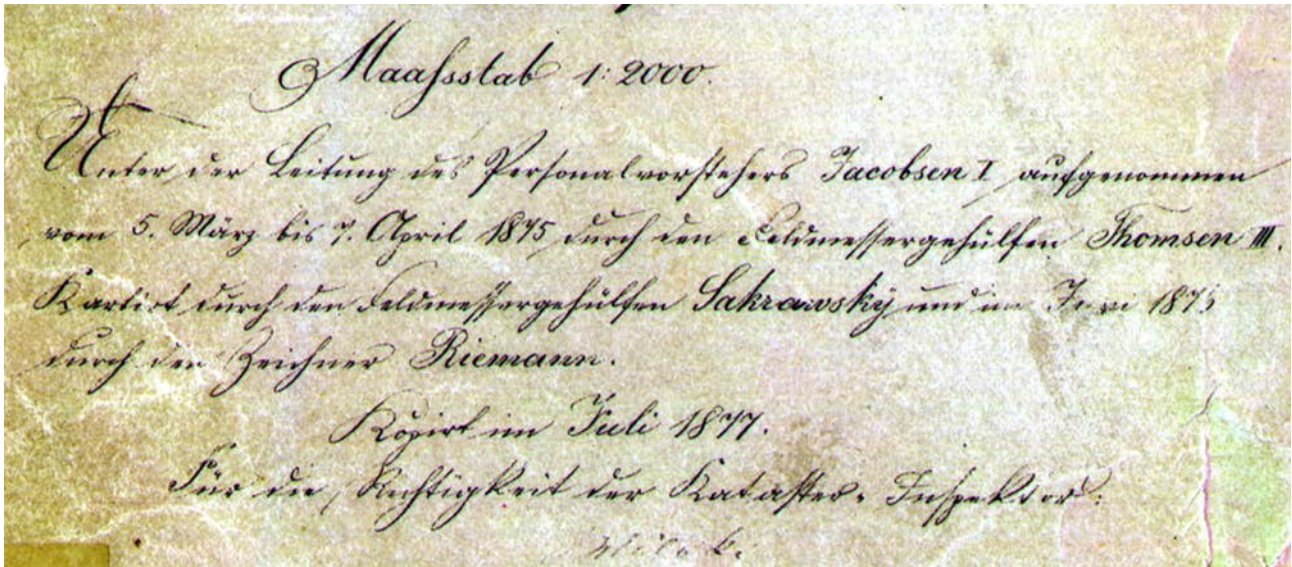 Maaßstab 1:2000.
Unter der Leitung des Personalvorstehers Jacobsen I aufgenommen
vom 5. März bis 7. April 1875 durch den Feldmessergehülfen Thomsen III.
Kartirt durch den Feldmessergehülfen Sakrawsky und im Juni 1875
durch den Zeichner Riemann.
Kopirt im Juli 1877.
Für die Richtigkeit der Kataster-Inspektor: